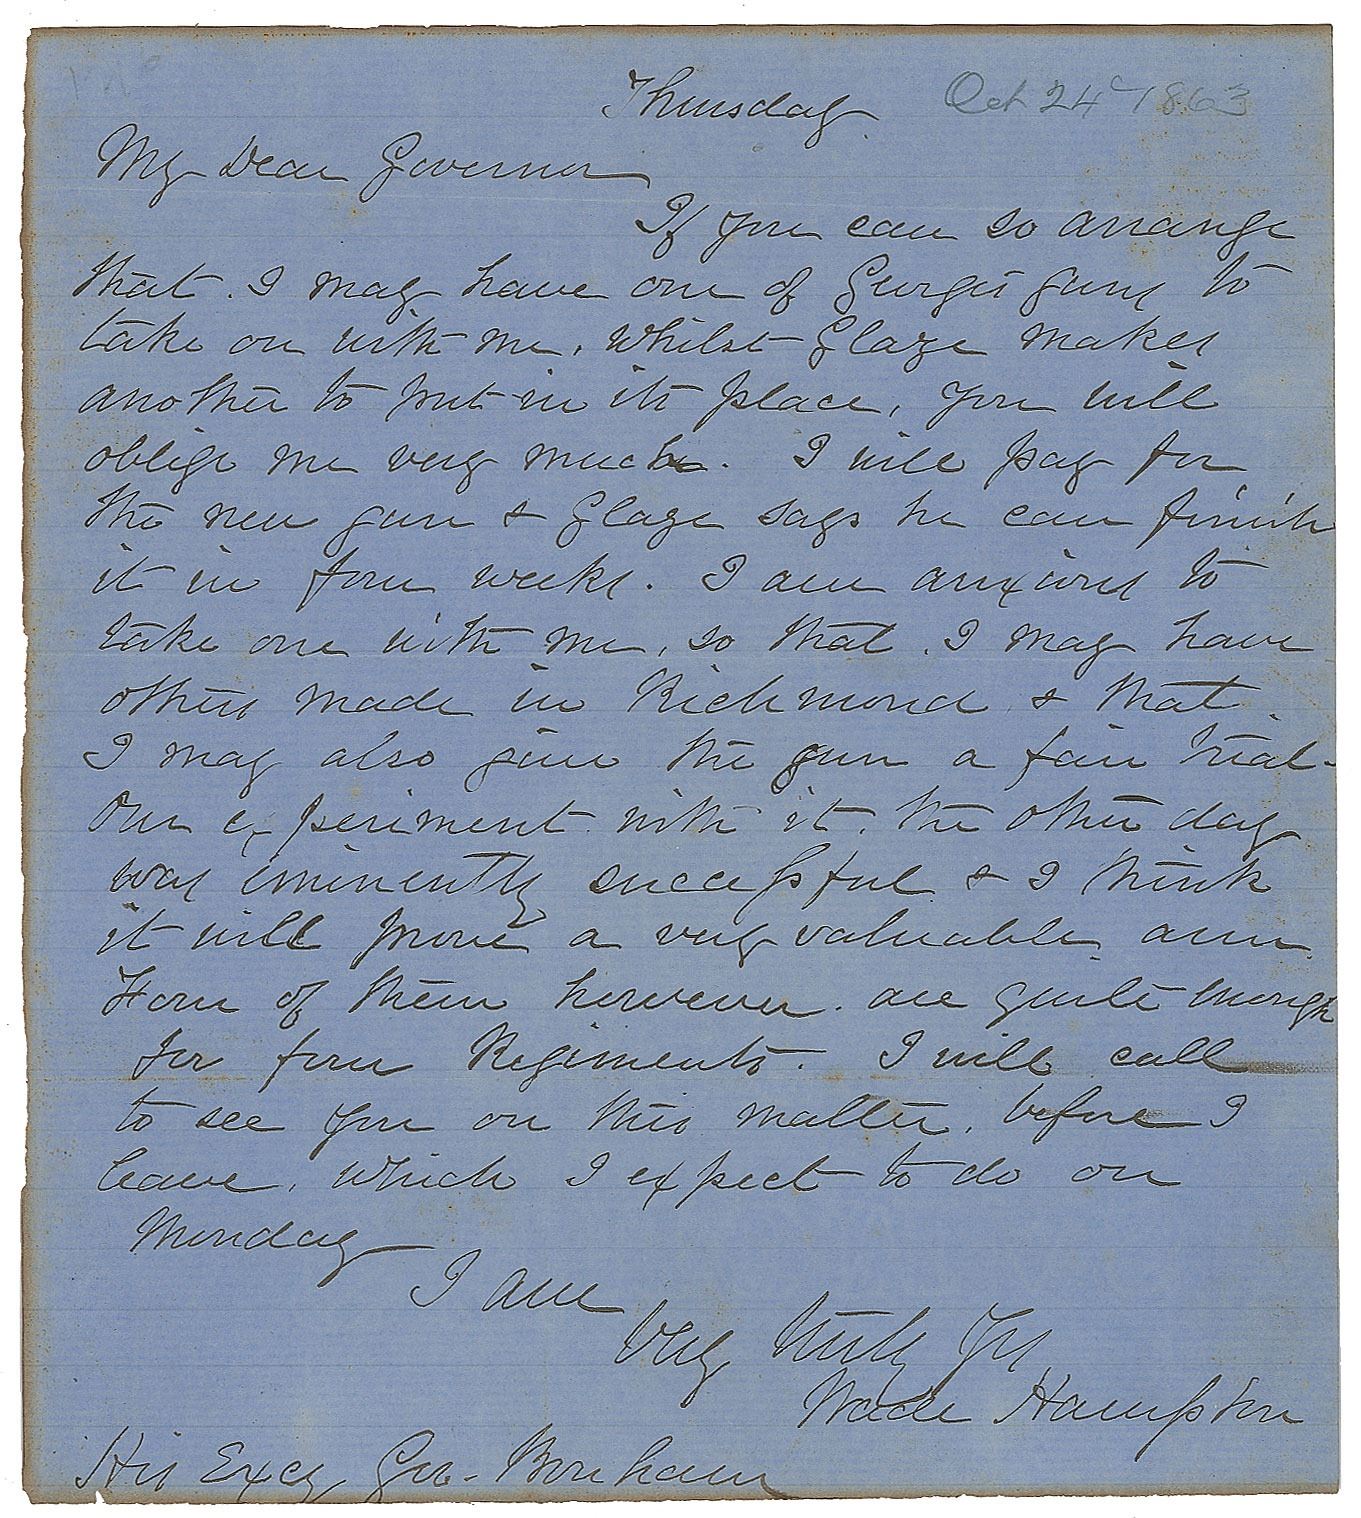 Thursday Oct 24 1863
My Dear Governor
If you can so arrange
that I may have one of guns to
take on with me, whilst Glaze makes
another to put in its place, you will
oblige me very much. I will pay for
the new gun & Glaze says he can finish
it in four weeks. I am anxious to
take one with me, so that I may have
others made in Richmond & that
I may also give the gun a fair trial-
Our experiment with it, the other day
was eminently successful & I think
it will prove a very valuable arm
Four of them however are quite enough
for four Regiments. I will call
to see you on this matter, before I
leave, which I expect to do on
Monday
I am
Very Truly Yrs
Wade Hampton
His Excy Gov. Bonham